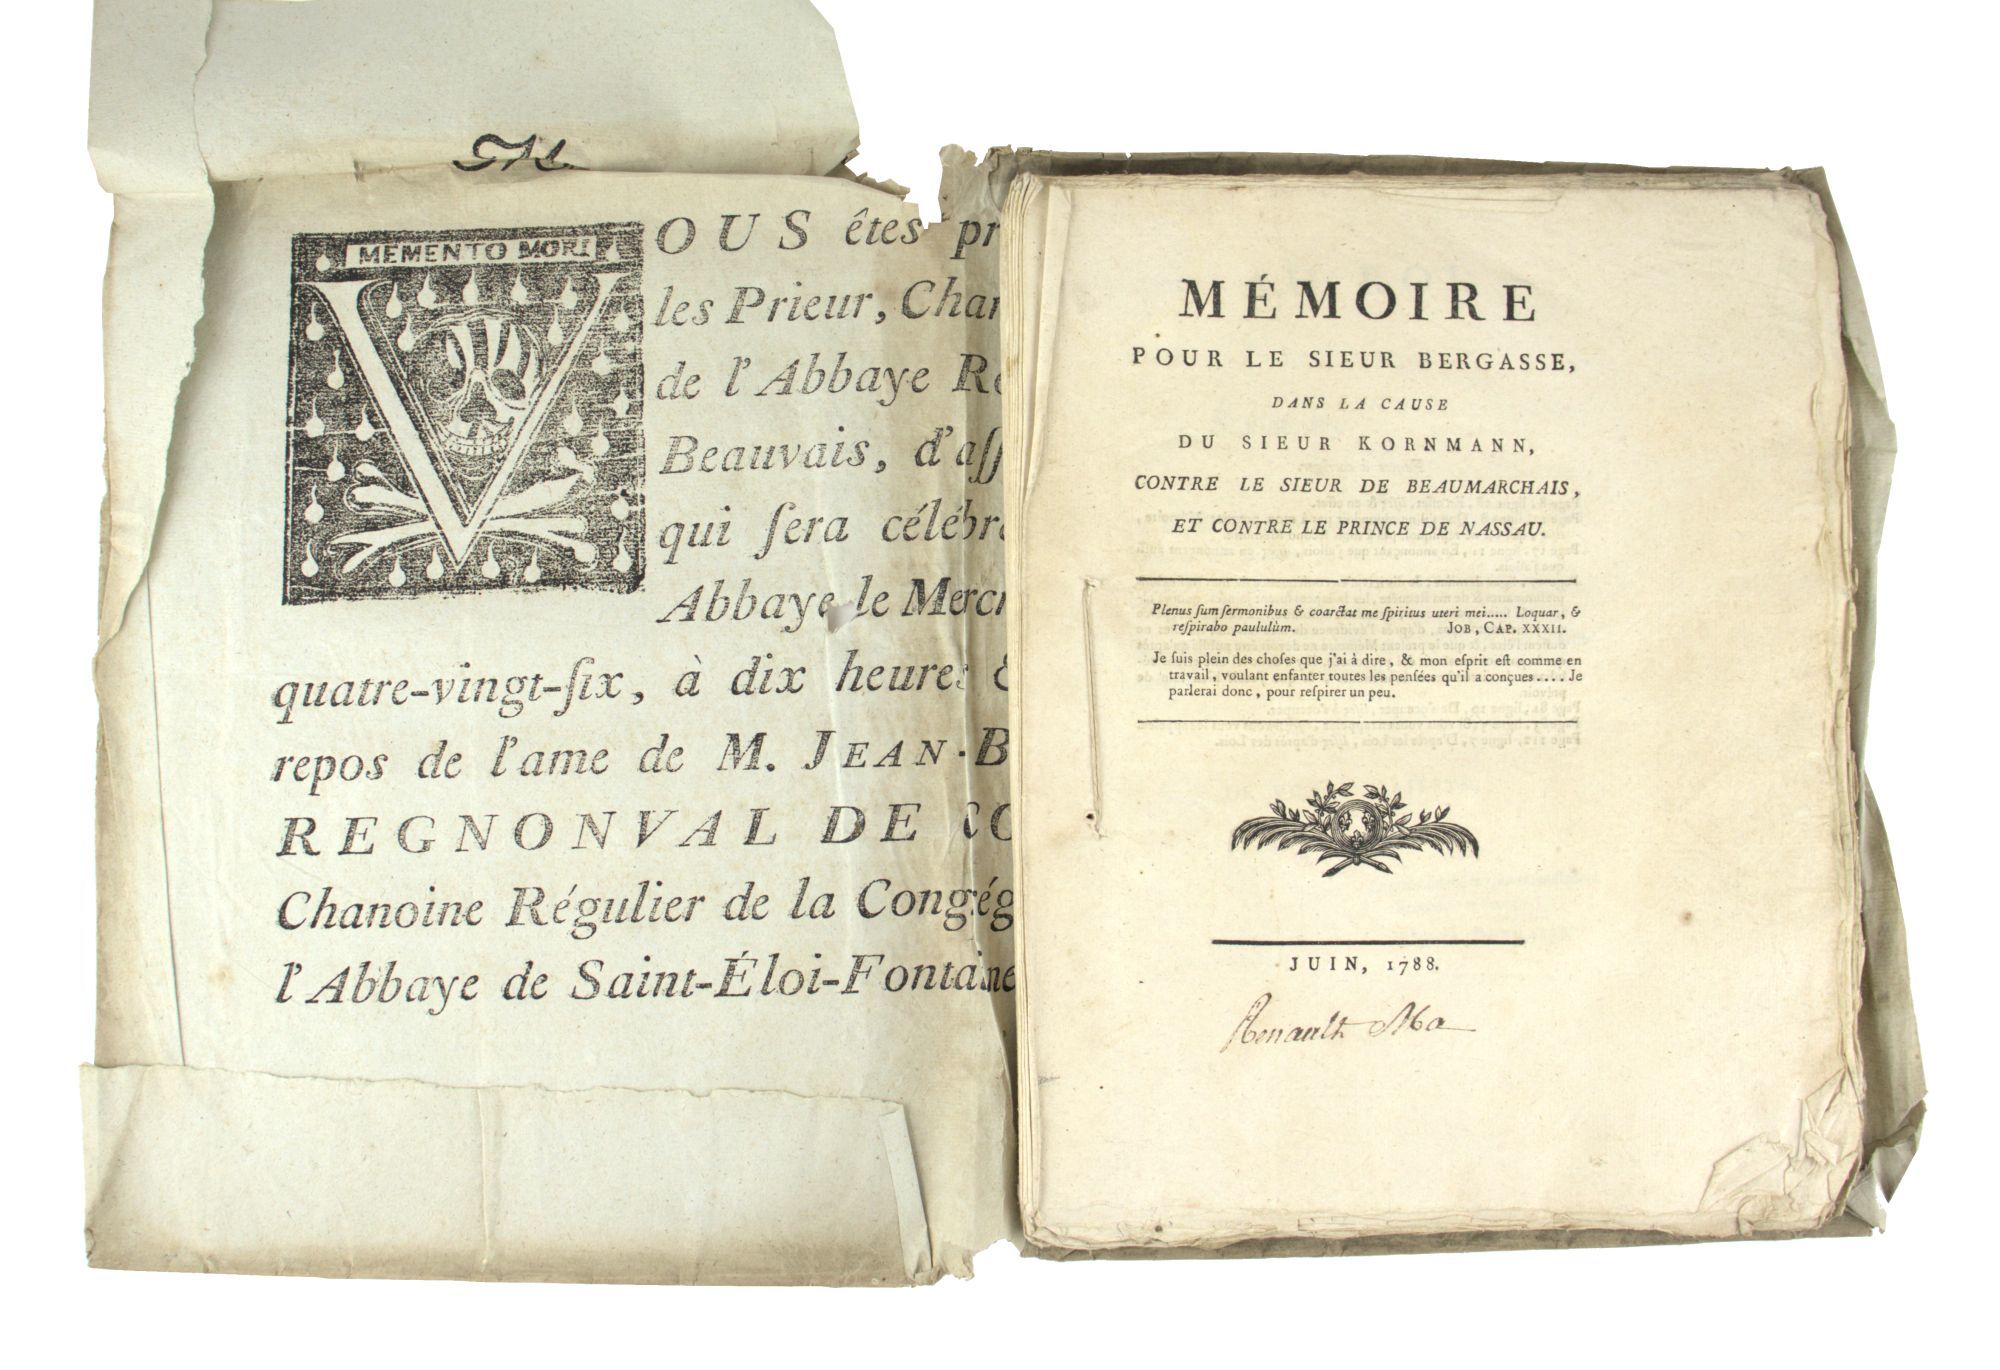 MEMENTO MORI
VOUS êtes pr
les Prieur, Chan
de l'Abbaye Ro
Beauvais, d'aſſ
qui ſera célébré
Abbaye le Mercr
quatre-vingt-ſix, à dix heures &
repos de l'ame de M. JEAN-B
REGNONVAL DE CO
Chanoine Régulier de la Congrég
l'Abbaye de Saint-Éloi-Fontaine
MÉMOIRE
POUR LE SIEUR BERGASSE,
DANS LA CAUSE
DU SIEUR KORNMANN,
CONTRE LE SIEUR DE BEAUMARCHAIS,
ET CONTRE LE PRINCE DE NASSAU.
Plenus ſum ſermonibus & coarctat me ſpiritus uteri mei..... Loquar, &
reſpirabo paululùm. JOB, CAP. XXXII.
Je ſuis plein des choſes que j'ai à dire, & mon eſprit eſt comme en
travail, voulant enfanter toutes les penſées qu'il a conçues.... Je
parlerai donc, pour reſpirer un peu.
JUIN, 1788.
Renault